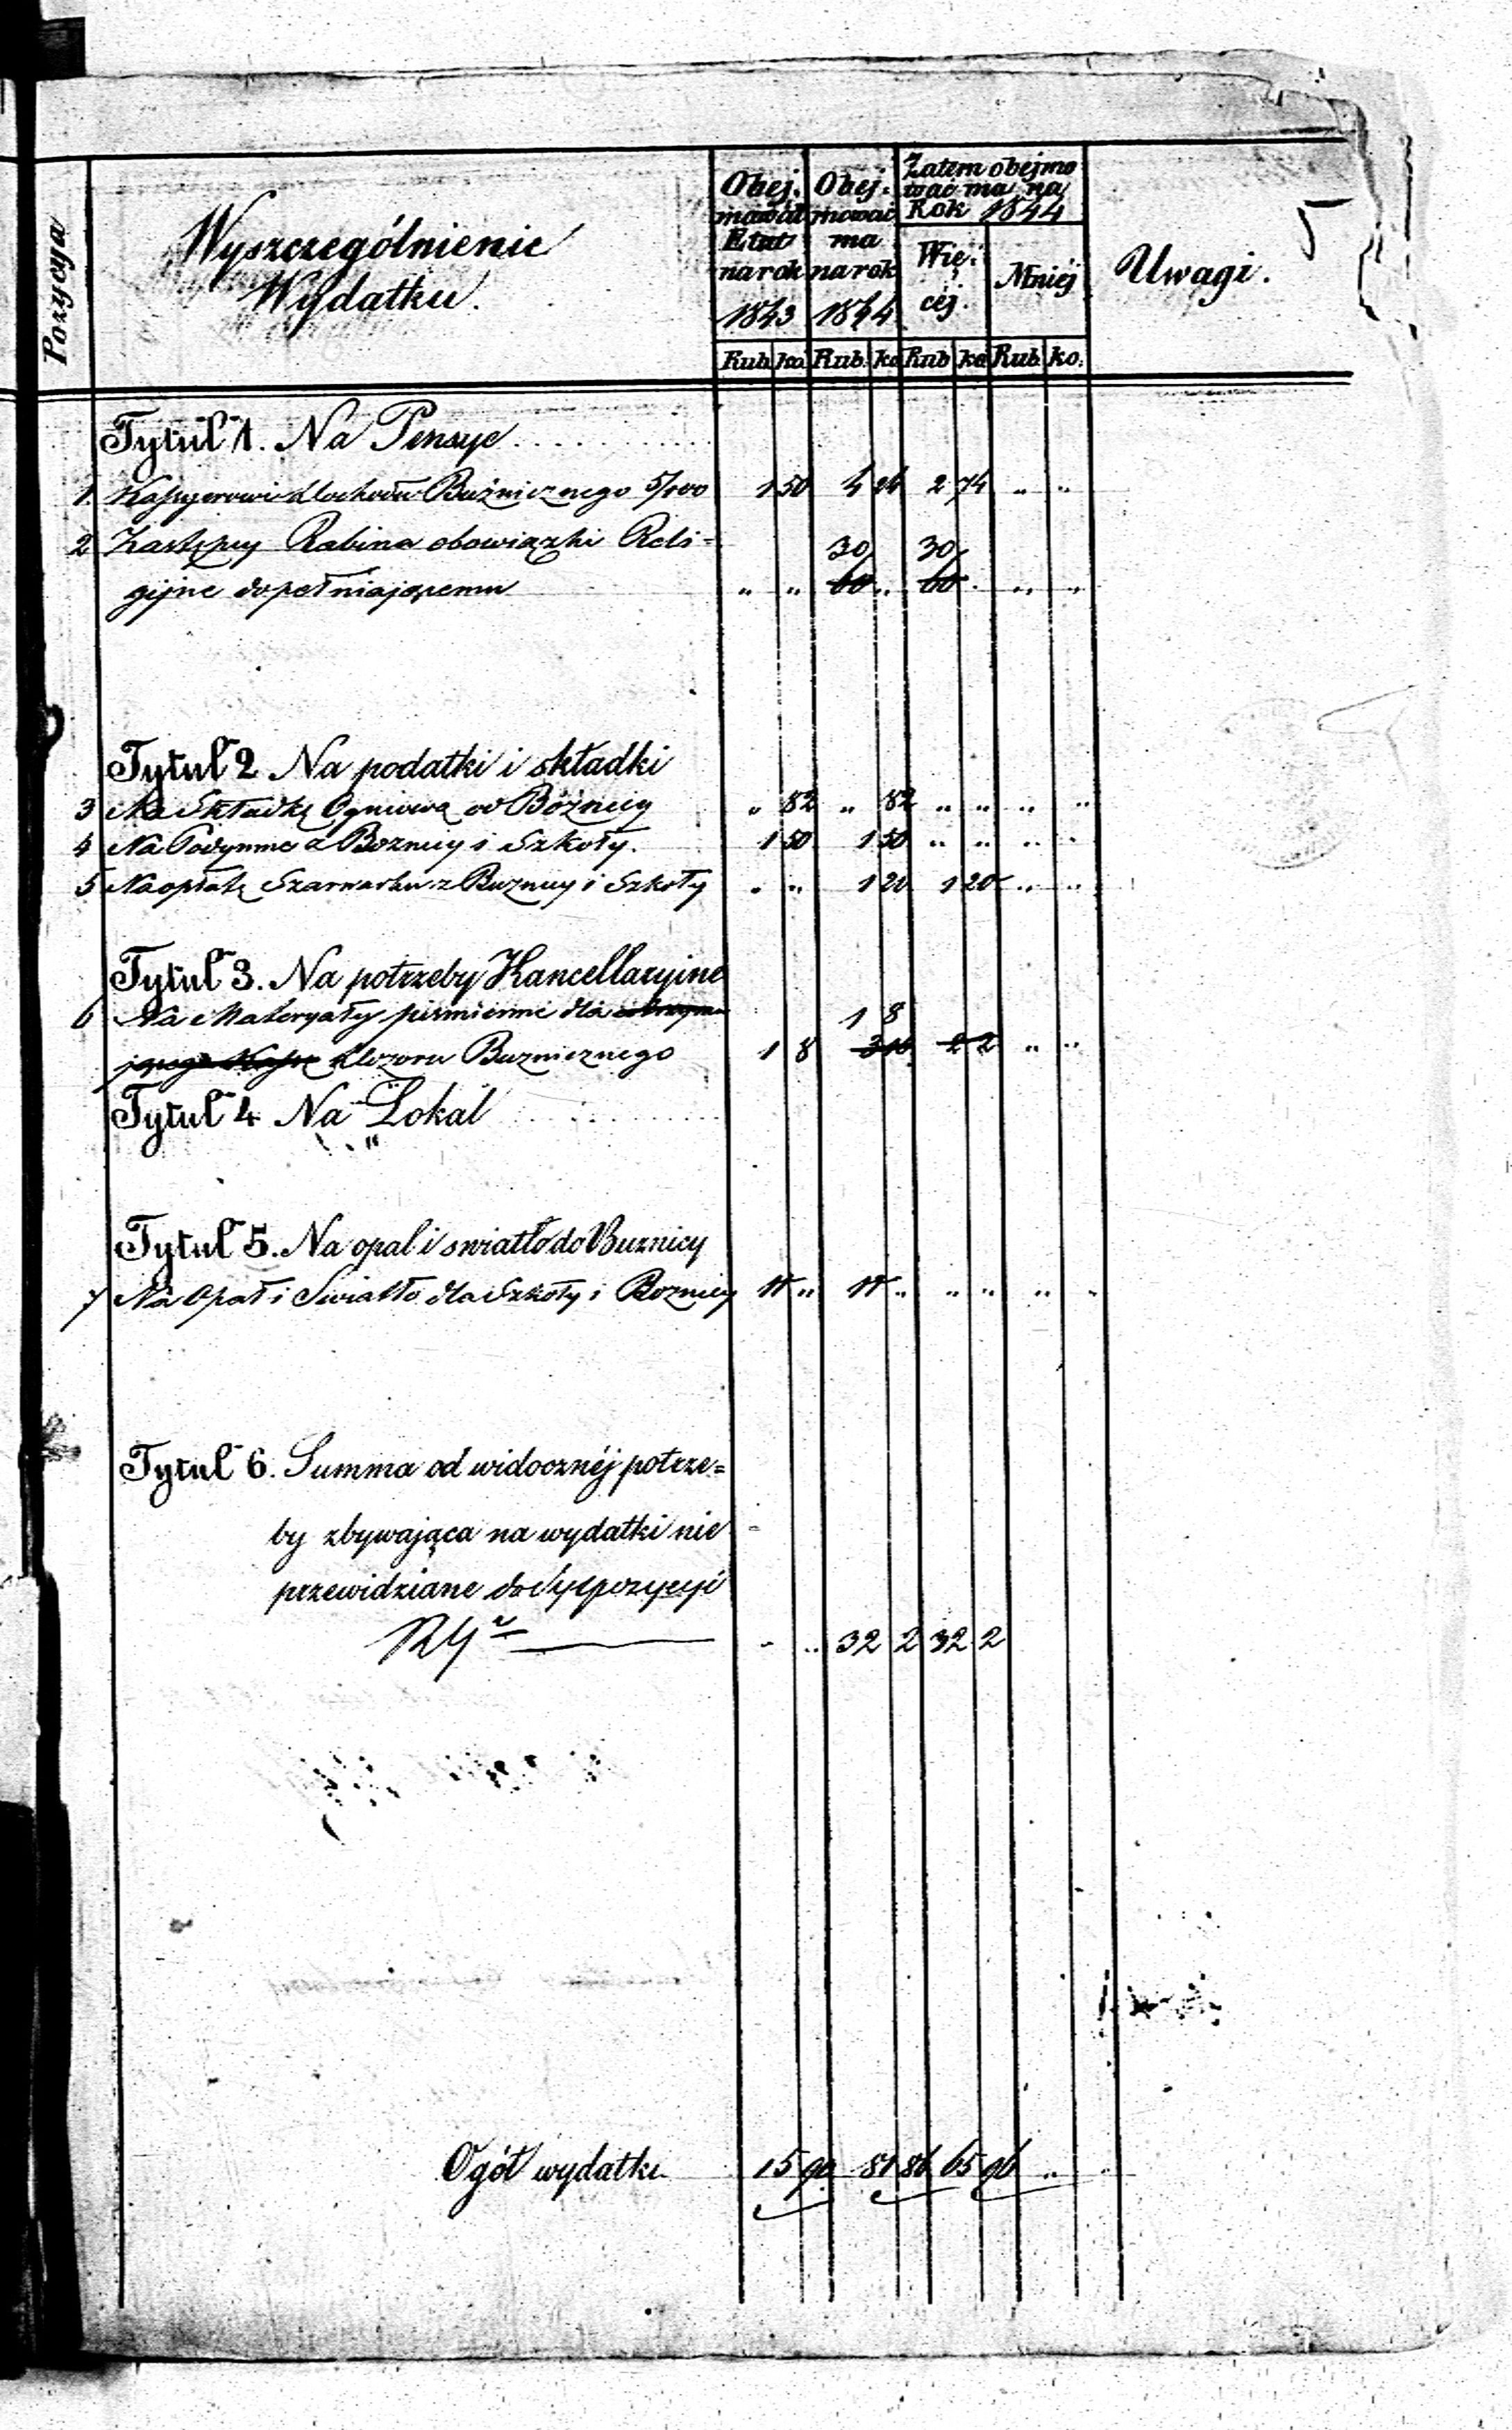 5
Pozycya
Wyszczególnienie
Wydatku.
Obej-
mował
Etat
na rok
1843
Obej-
mować
ma
na rok
1844
Zatem obejmo
wać ma na
Rok 1844
Wię-
cej.
Mniéj
Uwagi.
Rub ko. Rub. ko Rub ko Rub. ko.
Tytuł 1. Na Pensye
1. Kassyerowi dochodu Buźnicznego 5/100 1 50 4 24 2 74 " "
2 Zastępcy Rabina obowiązki Reli= 30 30
gijne dopełniającemu " " 60 " 60 " " "
Tytuł 2 Na podatki i składki
3 Na Składkę Ogniową od Bóżnicy " 82 " 82 " " " "
4 Na Podymne z Bożnicy i Szkoły. 1 50 1 50 " " " "
5 Na opłatę Szarwarku z Buznicy i Szkoły " " 1 20 1 20 " "
Tytuł 3. Na potrzeby Kancellaryine
6 Na Materyały piśmienne dla 1 8
Dozoru Buznicznego 1 8 3 10 2 2 " "
Tytuł 4 Na Lokal
"
Tytuł 5. Na opal i swiatło do Buznicy
7 Na Opał i Swiatło dla Szkoły i Boznicy 11 " 11 " " " " "
Tytuł 6. Summa od widocznéj potrze=
by zbywająca na wydatki nie -
przewidziane do dyspozycyi
- " 32 2 32 2
Ogół wydatku 15 90 81 86 65 96 " "